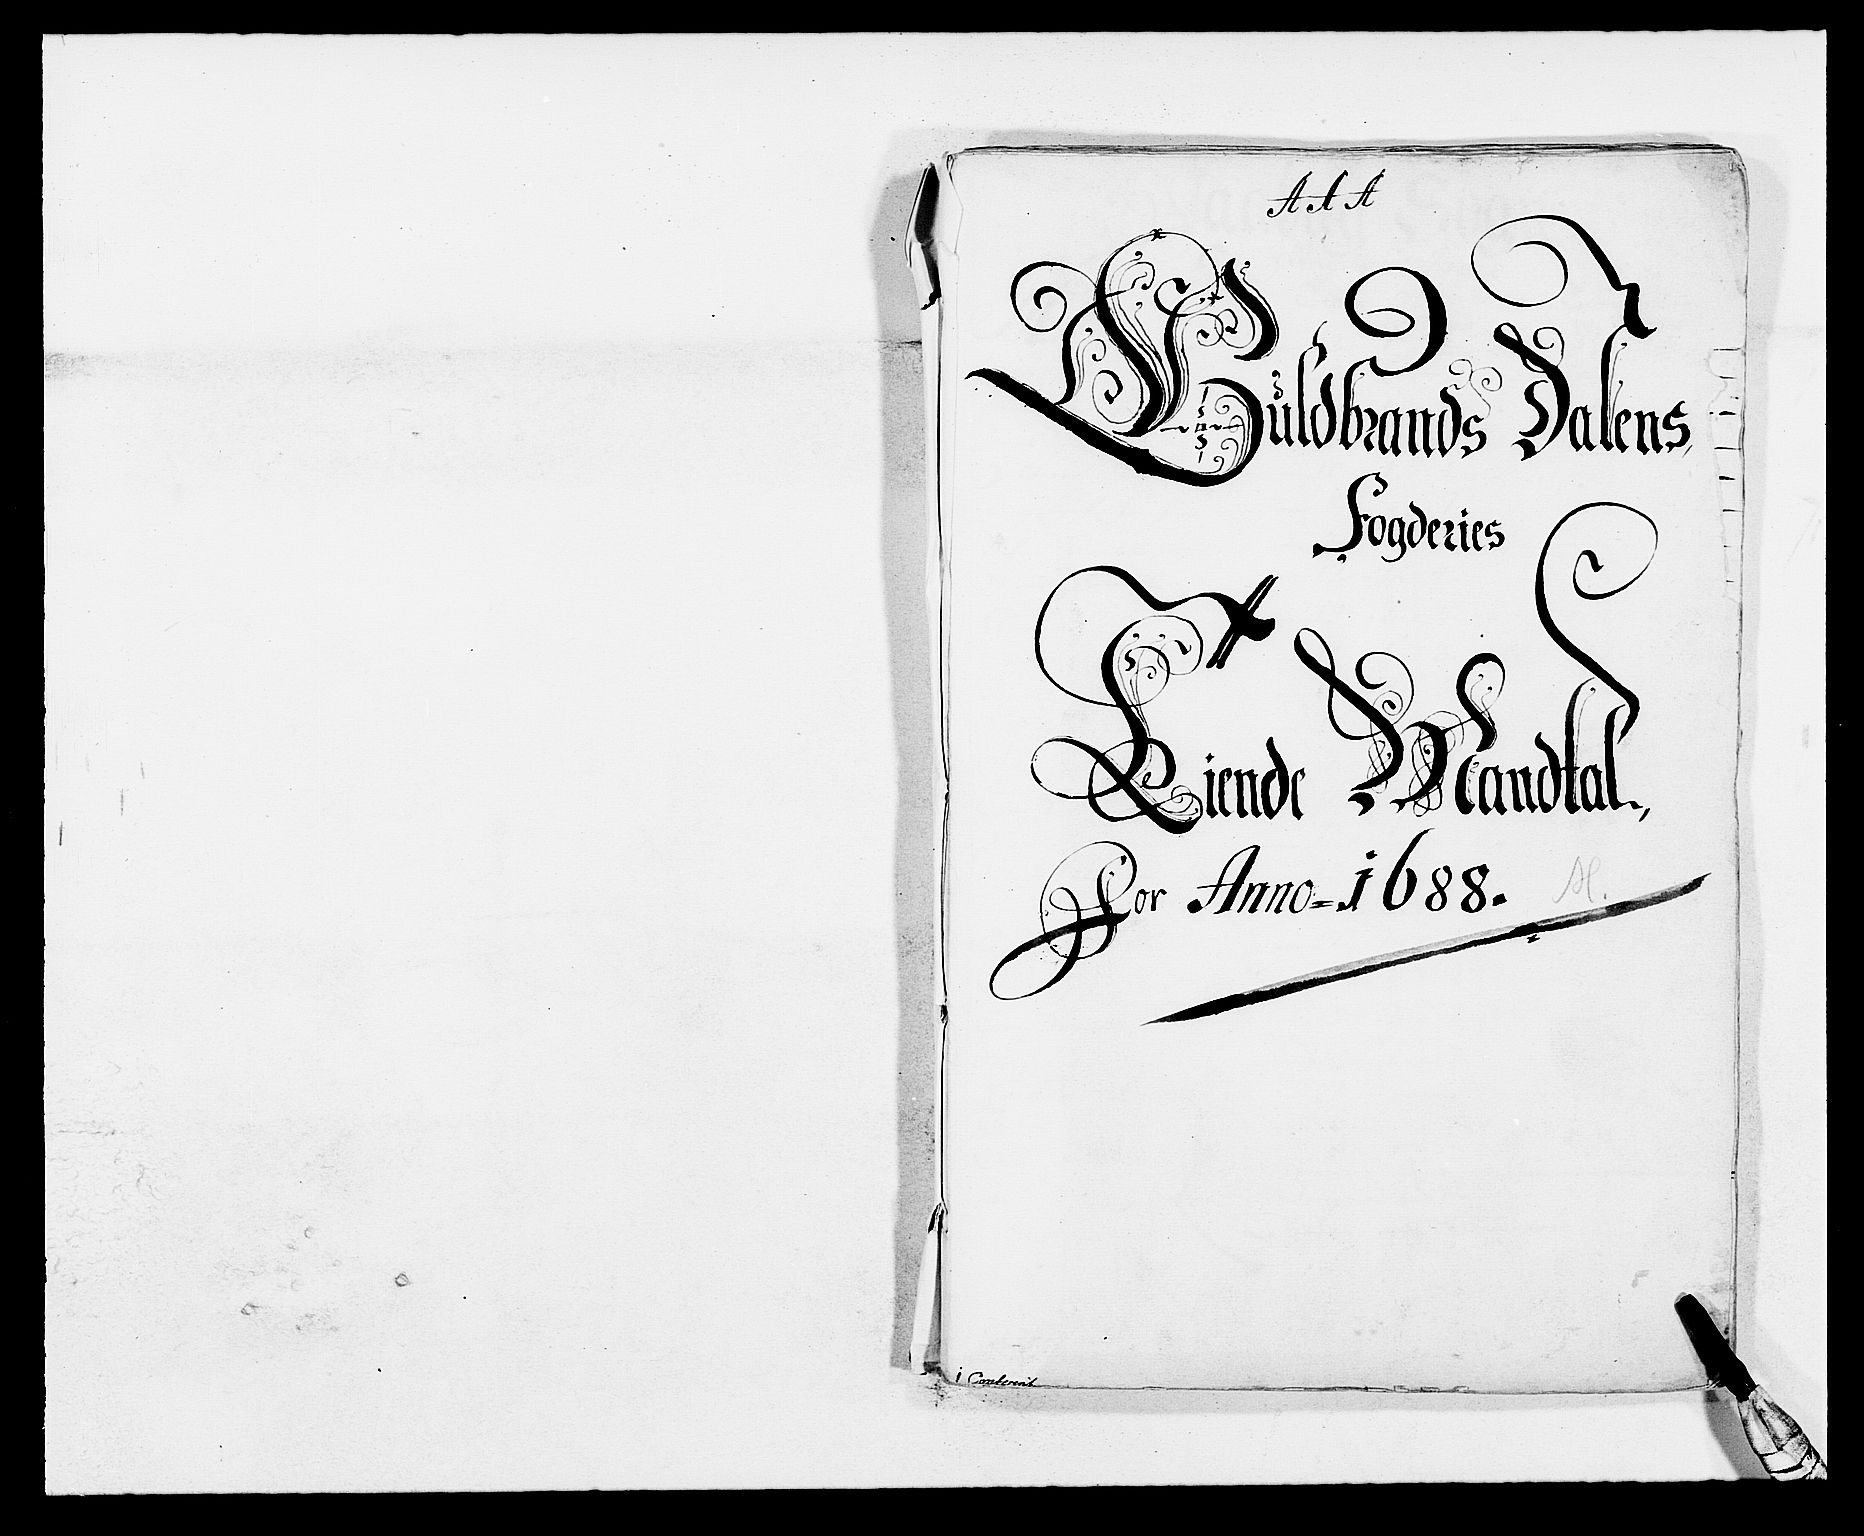 A A A
Guldbrands Dalens,
Fogderies
Tiende Mandtal.,
For Anno=1688.